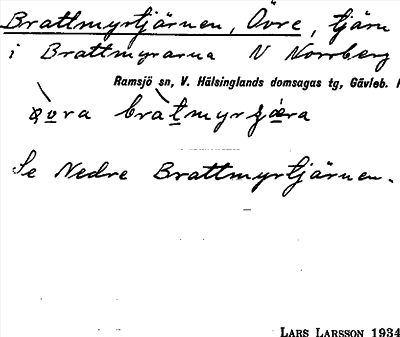 Brattmyrtjärnen, Övre, tjärn
i Brattmyrarna N Norrberg
Ramsjö sn, V. Hälsinglands domsagas tg, Gävleb.
Se Nedre Brattmyrtjärnen.
LARS LARSSON 1934